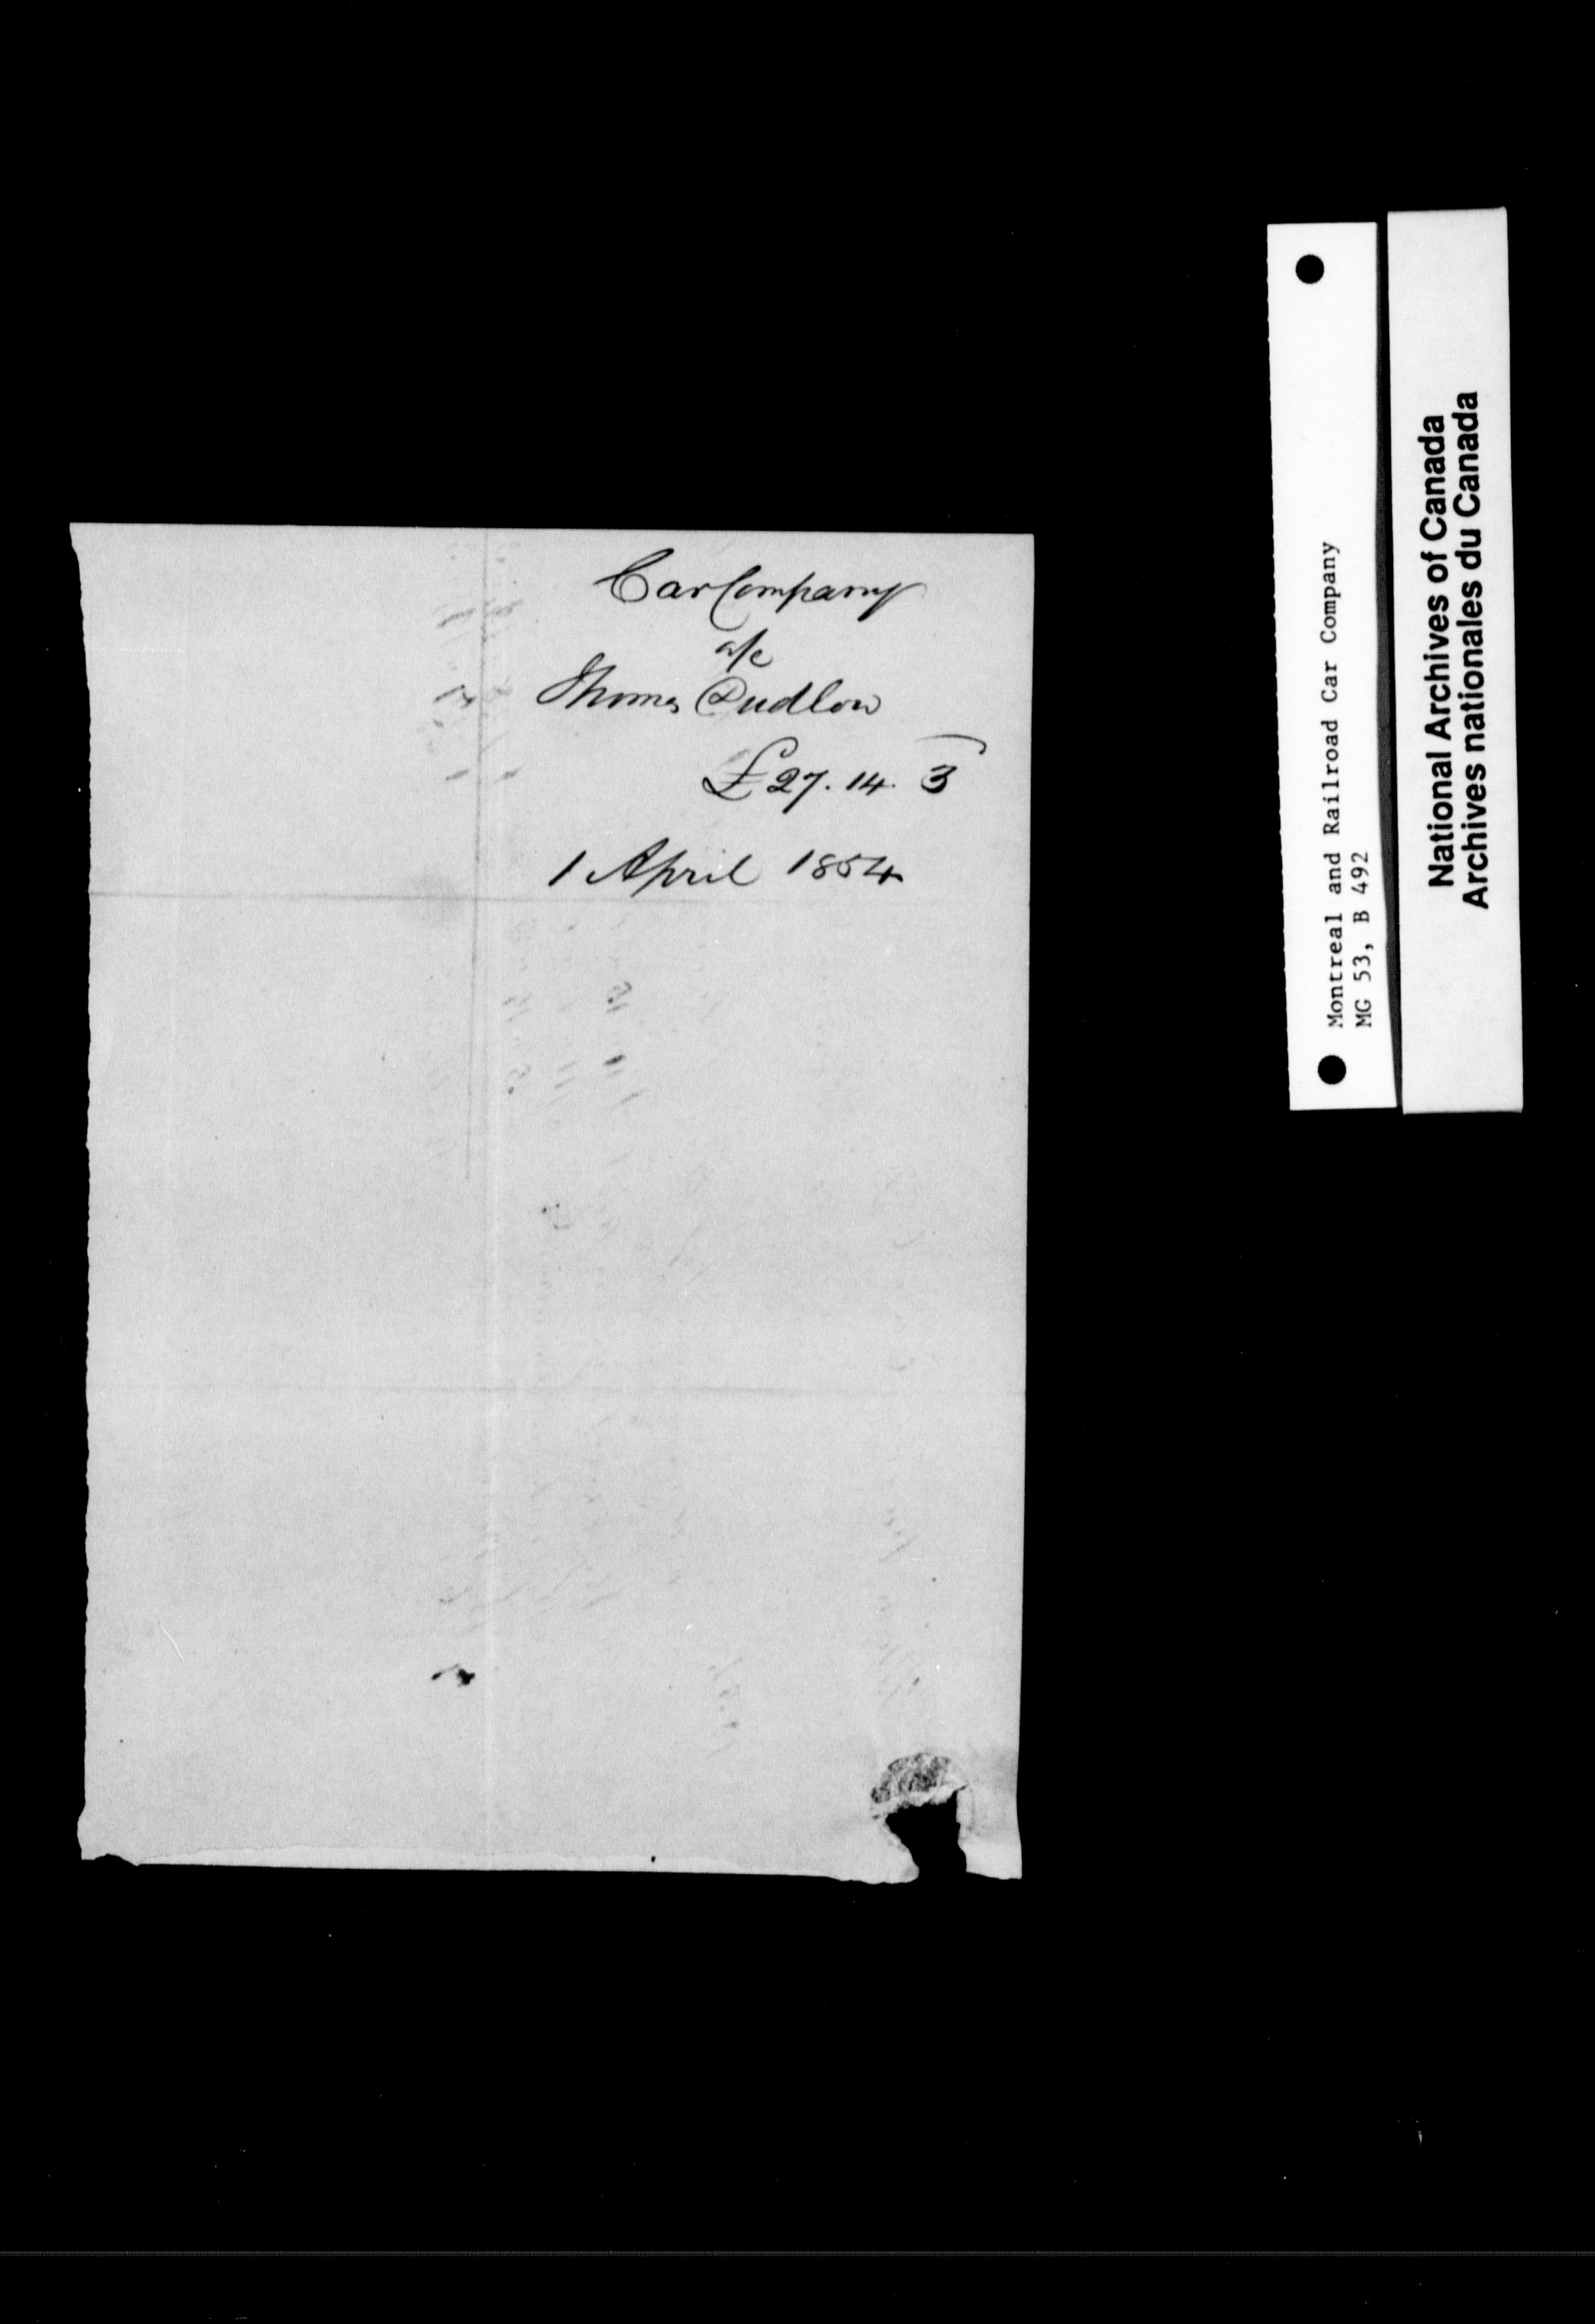 Car Company
a/c
Thomas Dudlow
£27. 14. 3
1 April 1854
Montreal and Railroad Car Company
MG 53, B 492
National Archives of Canada
Archives nationales du Canada